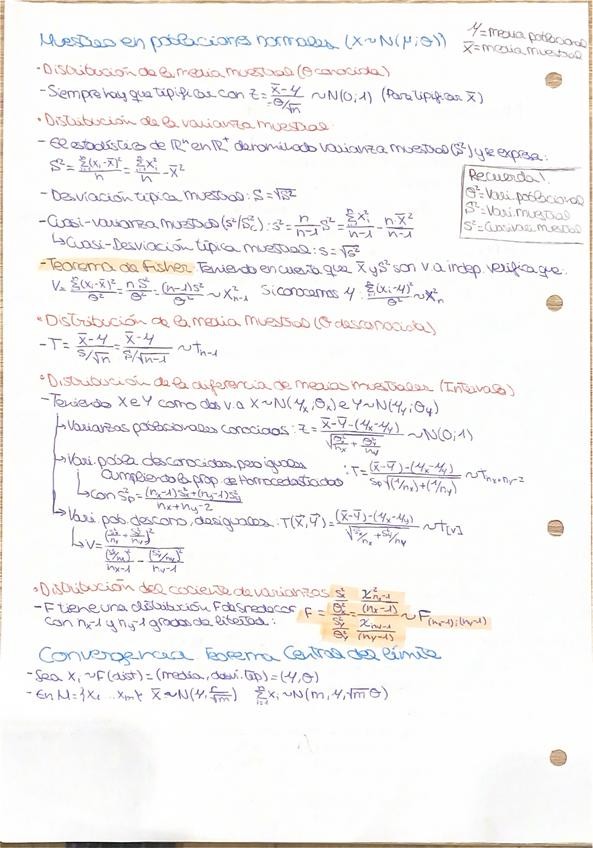 Muestreo en poblaciones normales (X~N(μ;θ))
μ=media poblacional
x̄=media muestral
·Distribución de la media muestral (θ conocida)
-Siempre hay que tipificar con Z=(x̄-μ)/(θ/√n) ~N(0;1) (Para tipificar x̄)
·Distribución de la varianza muestral:
-El estadístico de ℝⁿ en ℝ⁺ denominado varianza muestral (S²) y se expresa:
S²=Σ(xᵢ-x̄)²/n=Σxᵢ²/n-x̄²
Recuerda!
θ²=Vari.poblacional
S²=Vari muestral
s²=Cuasivari muestral
-Desviación típica muestral: S=√S²
-Cuasi-varianza muestral (s²/Sc²): s²=n/(n-1) S²=Σxᵢ²/(n-1)-n x̄²/(n-1)
↳Cuasi-Desviación típica muestral: s=√s²
-Teorema de Fisher: Teniendo en cuenta que x̄ y S² son v.a indep. verifica que:
V=Σ(xᵢ-x̄)²/θ²=nS²/θ²=(n-1)s²/θ² ~χ²ₙ₋₁ Si conocemos μ: Σ(xᵢ-μ)²/θ² ~χ²ₙ
·Distribución de la media muestral (θ desconocida)
-T=(x̄-μ)/(s/√n)=(x̄-μ)/(S/√n-1) ~tₙ₋₁
·Distribución de la diferencia de medias muestrales (Intervalo)
-Teniendo X e Y como dos v.a X~N(μₓ;θₓ) e Y~N(μᵧ;θᵧ)
↳Varianzas poblacionales conocidas: Z=(x̄-ȳ-(μₓ-μᵧ))/√(θₓ²/nₓ+θᵧ²/nᵧ) ~N(0;1)
↳Vari.pobla desconocidas pero iguales
Cumpliendo la prop. de Homocedasticidad :T=((x̄-ȳ)-(μₓ-μᵧ))/(Sp√((1/nₓ)+(1/nᵧ))) ~tₙₓ₊ₙᵧ₋₂
↳con Sp²=((nₓ-1)sₓ²+(nᵧ-1)sᵧ²)/(nₓ+nᵧ-2)
↳Vari pob. descono, desiguales: T(x̄,ȳ)=((x̄-ȳ)-(μₓ-μᵧ))/√(sₓ²/nₓ+sᵧ²/nᵧ) ~t[v]
↳V=(sₓ²/nₓ+sᵧ²/nᵧ)²/((sₓ²/nₓ)²/(nₓ-1)-(sᵧ²/nᵧ)²/(nᵧ-1))
·Distribución del cociente de varianzas
-F tiene una distribución F de Snedecor
con nₓ-1 y nᵧ-1 grados de libertad:
F=(sₓ²/θₓ²)/(sᵧ²/θᵧ²)=(χ²ₙₓ₋₁/(nₓ-1))/(χₙᵧ₋₁/(nᵧ-1)) ~F(nₓ-1);(nᵧ-1)
Convergencia. Teorema Central del límite
-Sea xᵢ~F(dist)=(media, desvi.típ)=(μ,θ)